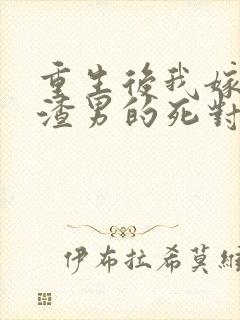 重生後我嫁
渣男的死對
伊布拉希莫維